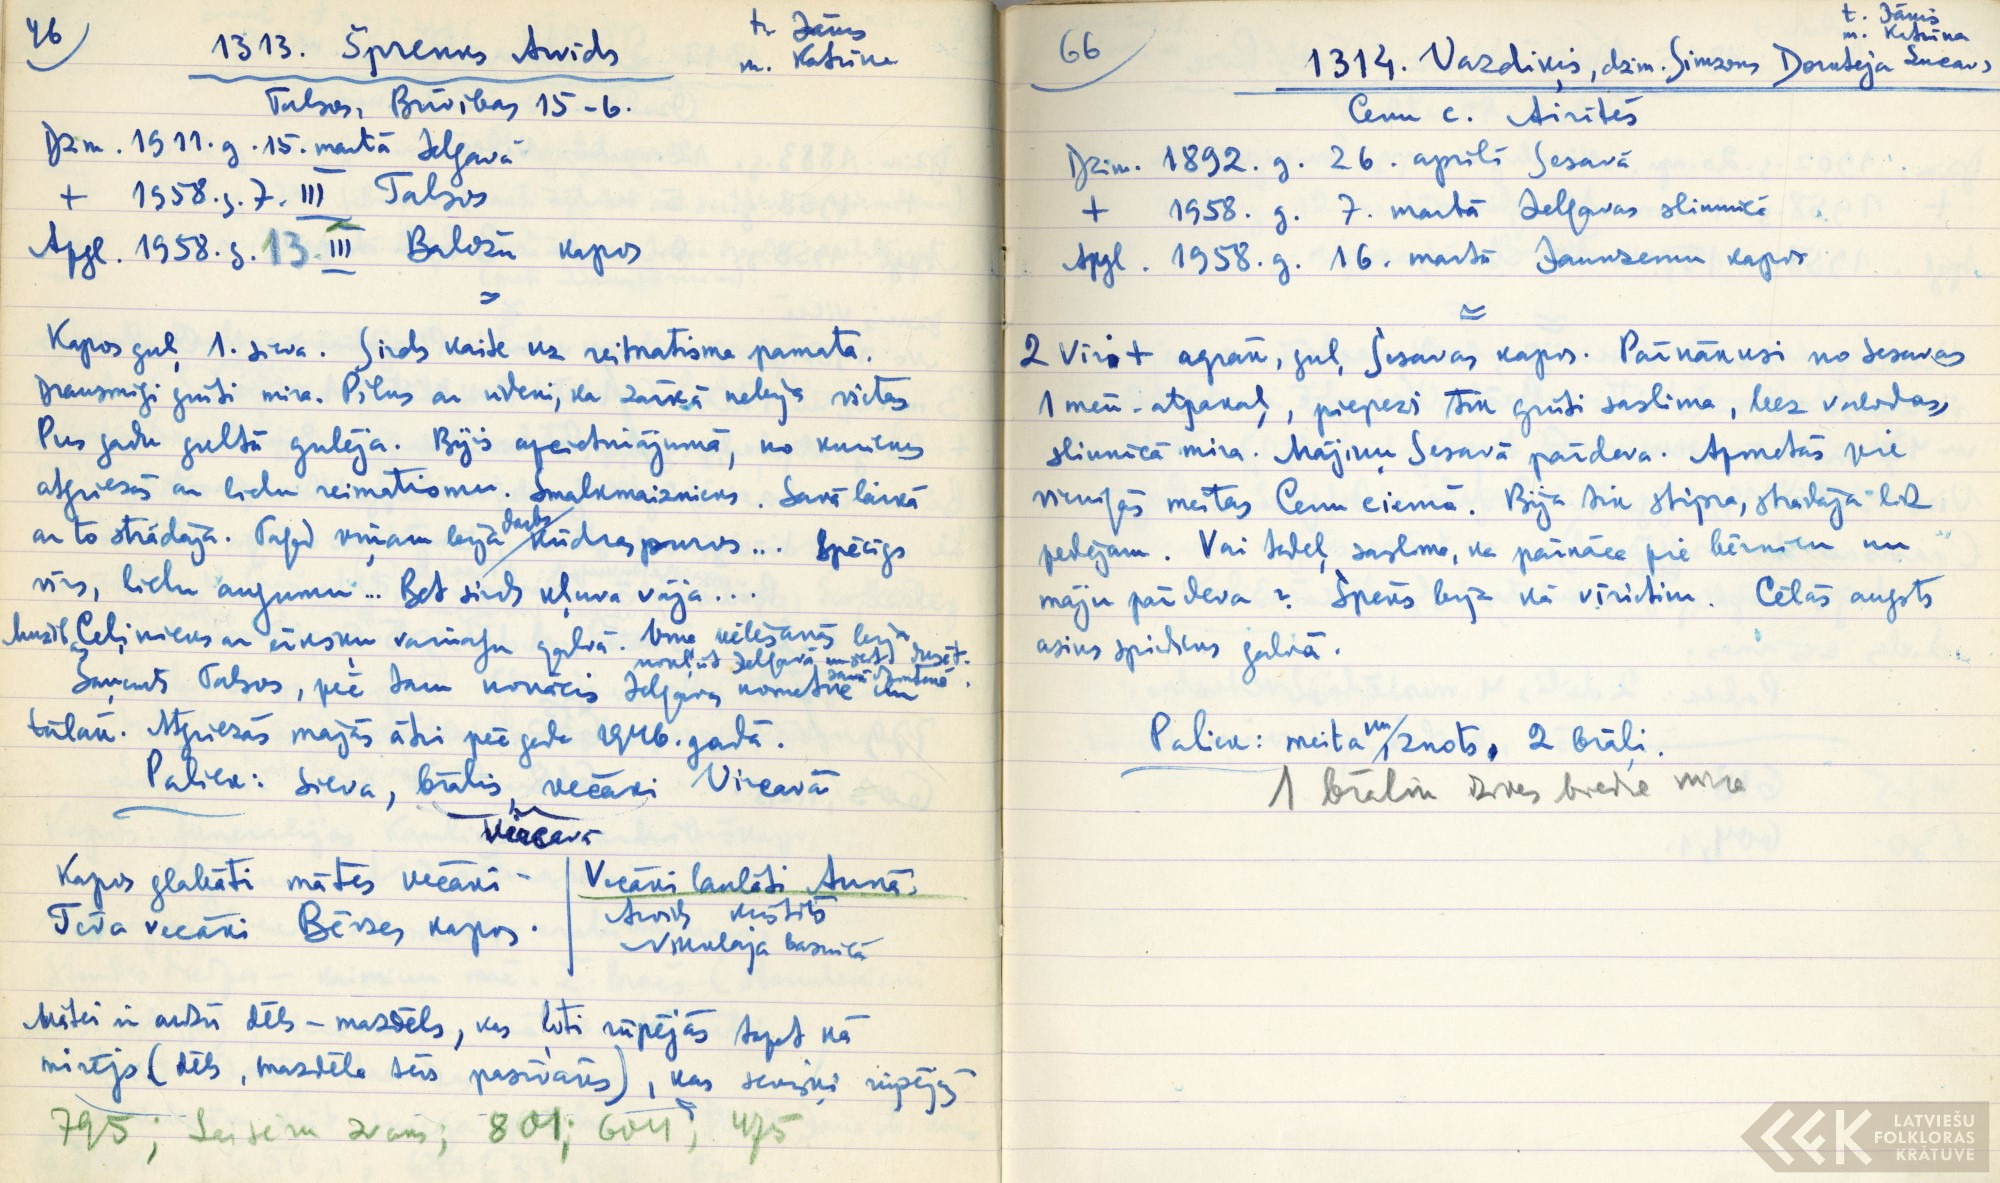 46
1313. Šprenks Arvids
t. Jānis
m. Katrīna
Talsos, Brīvības 15-6.
Dzim. 1911. g. 15. martā Jelgavā
+ 1958. g. 7. III Talsos
Apgl. 1958. g. 13. III Baložu kapos
Kapos guļ 1. sieva. Sirds kaite uz reimatisma pamata.
Drausmīgi grūti mira. Pilns ar ūdeni, ka zārkā nebija vietas
Pus gadu gultā gulēja. Bijis apcietinājumā, no kurienes
atgriezās ar lielu reimatismu. Smalkmaiznieks. Savā laikā
ar to strādāja. Tagad viņam bija darbs Kūdraspurvos... Spēcīgs
vīrs, lielu augumu... Bet sirds kļuva vāja...
Celinieks ar galvā. Viņa vēlēšanās bija
nokļūt Jelgavā savā dzimtenē.
Saņemts Talsos, pēc tam nonācis Jelgavas nometnē un
tālāk. Atgriezās mājās ātri pēc gada 1946. gadā.
Paliek: sieva, brālis, vecāki Vircavā
Vircavā
Kapos glabāti mātes vecāki -
Tēva vecāki Bērzes kapos.
Vecāki laulāti Annā.
Arvids kristīts
Nikolaja baznīcā
Mātei ir audžu dēls - mazdēls, kas ļoti rūpējās tāpat kā
mirējs (dēls, mazdēla tēvs pasīvāks), kas sevišķi rūpējās
795; zvans; 801; 604; 475
66
t. Jānis
m. Katrīna
1314. Vazdiķis, dzim. Simsons Doroteja
Cenu c. Airītēs
Dzim. 1892. g. 26. aprīlī Sesavā
+ 1958. g. 7. martā Jelgavas slimnīcā
Apgl. 1958. g. 16. martā Jaunzemu kapos
2 vīri + agrāk, guļ Sesavas kapos. Pārnākusi no Sesavas
1 mēn. atpakaļ, piepeži tik grūti saslima, bez valodas,
slimnīcā mira. Mājiņu Sesavā pārdeva. Apmetās pie
vienīgās meitas Cenu ciemā. Bija tik stipra, strādāja līdz
pēdējam. Vai tādēļ saslima, ka pārnāca pie bērniem un
māju pārdeva? Spēks bija kā vīrietim. Cēlās augsts
asins spiediens galvā.
Paliek: meita un znots, 2 brāļi.
1 brālim dzīves biedre mira
LATVIEŠU
FOLKLORAS
KRĀTUVE